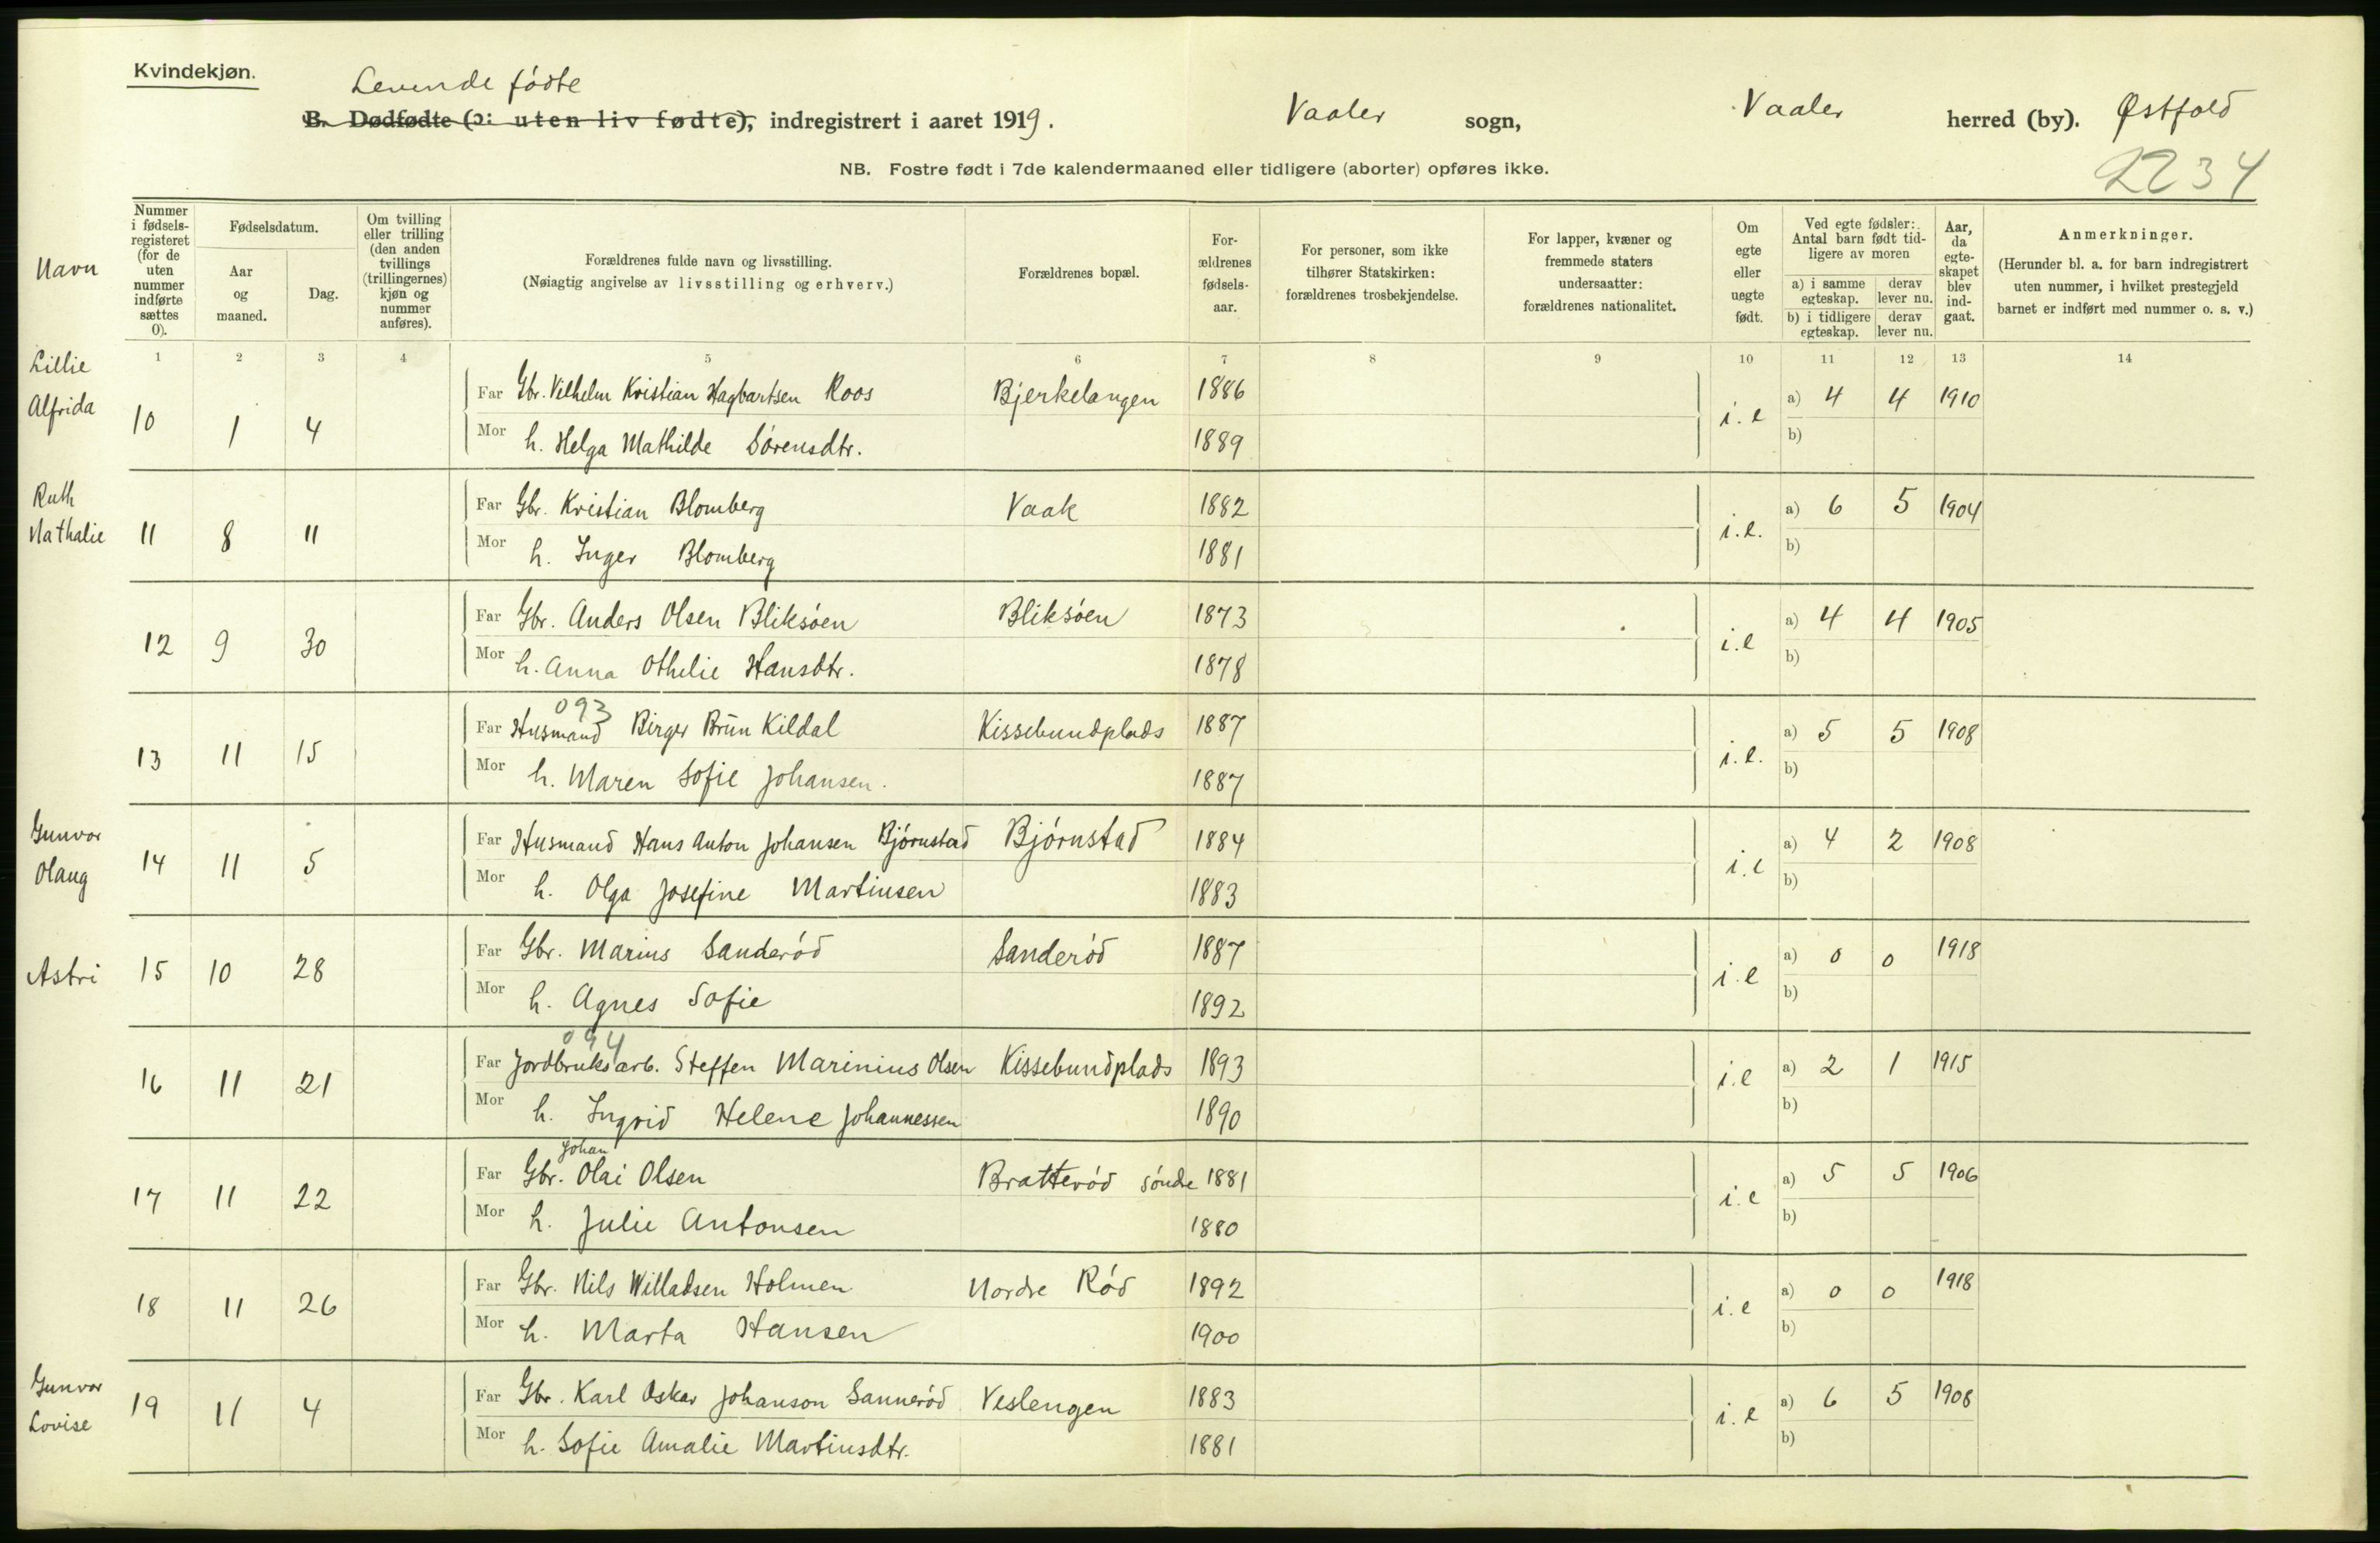 Kvindekjøn.
Levende fødte
B. Dødfødte (ɔ: uten liv fødte), indregistrert i aaret 1919. Vaaler sogn, Vaaler herred (by). Østfold
NB. Fostre født i 7de kalendermaaned eller tidligere (aborter) opføres ikke.
2234
Navn
Nummer i fødsels-registeret (for de uten nummer indførte sættes 0).
Fødselsdatum.
Aar og maaned.
Dag.
Om tvilling eller trilling (den anden tvillings (trillingernes) kjøn og nummer anføres).
Forældrenes fulde navn og livsstilling.
(Nøiagtig angivelse av livsstilling og erhverv.)
Forældrenes bopæl.
For-ældrenes fødsels-aar.
For personer, som ikke tilhører Statskirken: forældrenes trosbekjendelse.
For lapper, kvæner og fremmede staters undersaatter: forældrenes nationalitet.
Om egte eller uegte født.
Ved egte fødsler: Antal barn født tid-ligere av moren
a) i samme egteskap. derav lever nu.
b) i tidligere egteskap. derav lever nu.
Aar, da egte-skapet blev ind-gaat.
Anmerkninger.
(Herunder bl. a. for barn indregistrert uten nummer, i hvilket prestegjeld barnet er indført med nummer o. s. v.)
1 2 3 4 5 6 7 8 9 10 11 12 13 14
Lillie Alfrida 10 1 4 Far Gbr. Vilhelm Kristian Hagbartsen Roos Bjerkelangen 1886 i.e a) 4 4 1910
Mor h. Helga Mathilde Sørensdtr. 1889 b)
Ruth Nathalie 11 8 11 Far Gbr. Kristian Blomberg Vaak 1882 i.e. a) 6 5 1904
Mor h. Inger Blomberg 1881 b)
12 9 30 Far Gbr. Anders Olsen Bliksøen Bliksøen 1873 i.e a) 4 4 1905
Mor h. Anna Othelie Hansdtr. 1878 b)
093
13 11 15 Far Husmand Birger Brün Kildal Kissebundplads 1887 i.e. a) 5 5 1908
Mor h. Maren Sofie Johansen. 1887 b)
Gunvor Olaug 14 11 5 Far Husmand Hans Anton Johansen Bjørnstad Bjørnstad 1884 i.e a) 4 2 1908
Mor h. Olga Josefine Martinsen 1883 b)
Astri 15 10 28 Far Gbr. Marius Sanderød Sanderød 1887 i.e a) 0 0 1918
Mor h. Agnes Sofie 1892 b)
094
16 11 21 Far Jordbruksarb. Steffen Marinius Olsen Kissebundplads 1893 i.e a) 2 1 1915
Mor h. Ingrid Helene Johannessen 1890 b)
Johan
17 11 22 Far Gbr. Olai Olsen Bratterød søndre 1881 i.e a) 5 5 1906
Mor h. Julie Antonsen 1880 b)
18 11 26 Far Gbr. Nils Willadsen Holmen Nordre Rød 1892 i.e a) 0 0 1918
Mor h. Marta Hansen 1900 b)
Gunvor Lovise 19 11 4 Far Gbr. Karl Oskar Johanson Sannerød Veslengen 1883 i.e a) 6 5 1908
Mor h. Sofie Amalie Martinsdtr. 1881 b)